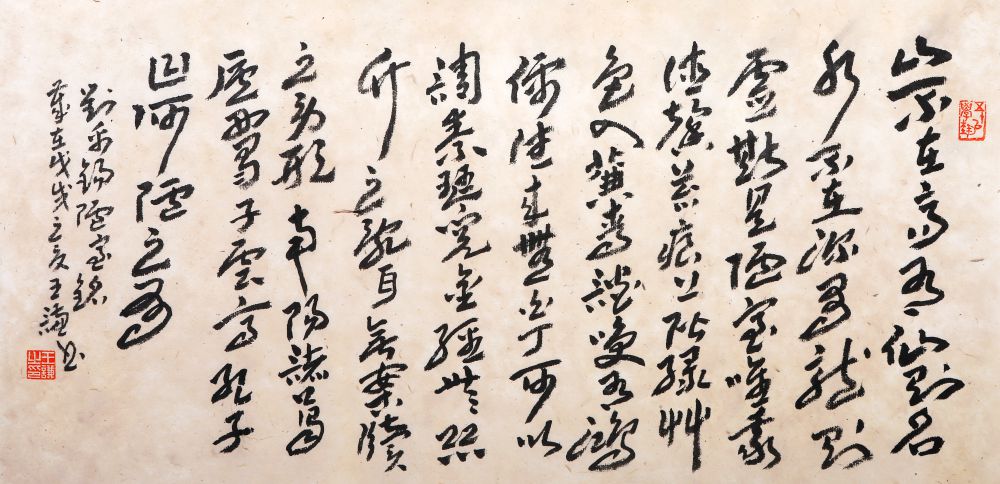 山不在高有仙則名
水不在深有龍則
靈斯是陋室唯吾
德馨苔痕上階綠艸
色入簾青談笑有鴻
儒往來無白丁可以
調素琴閱金經無絲
竹之亂耳無案牘
之勞形南陽諸葛
廬西蜀子雲亭孔子
曰何陋之有
劉禹錫陋室銘
歲在戊戌之夏王謙書
王謙之印